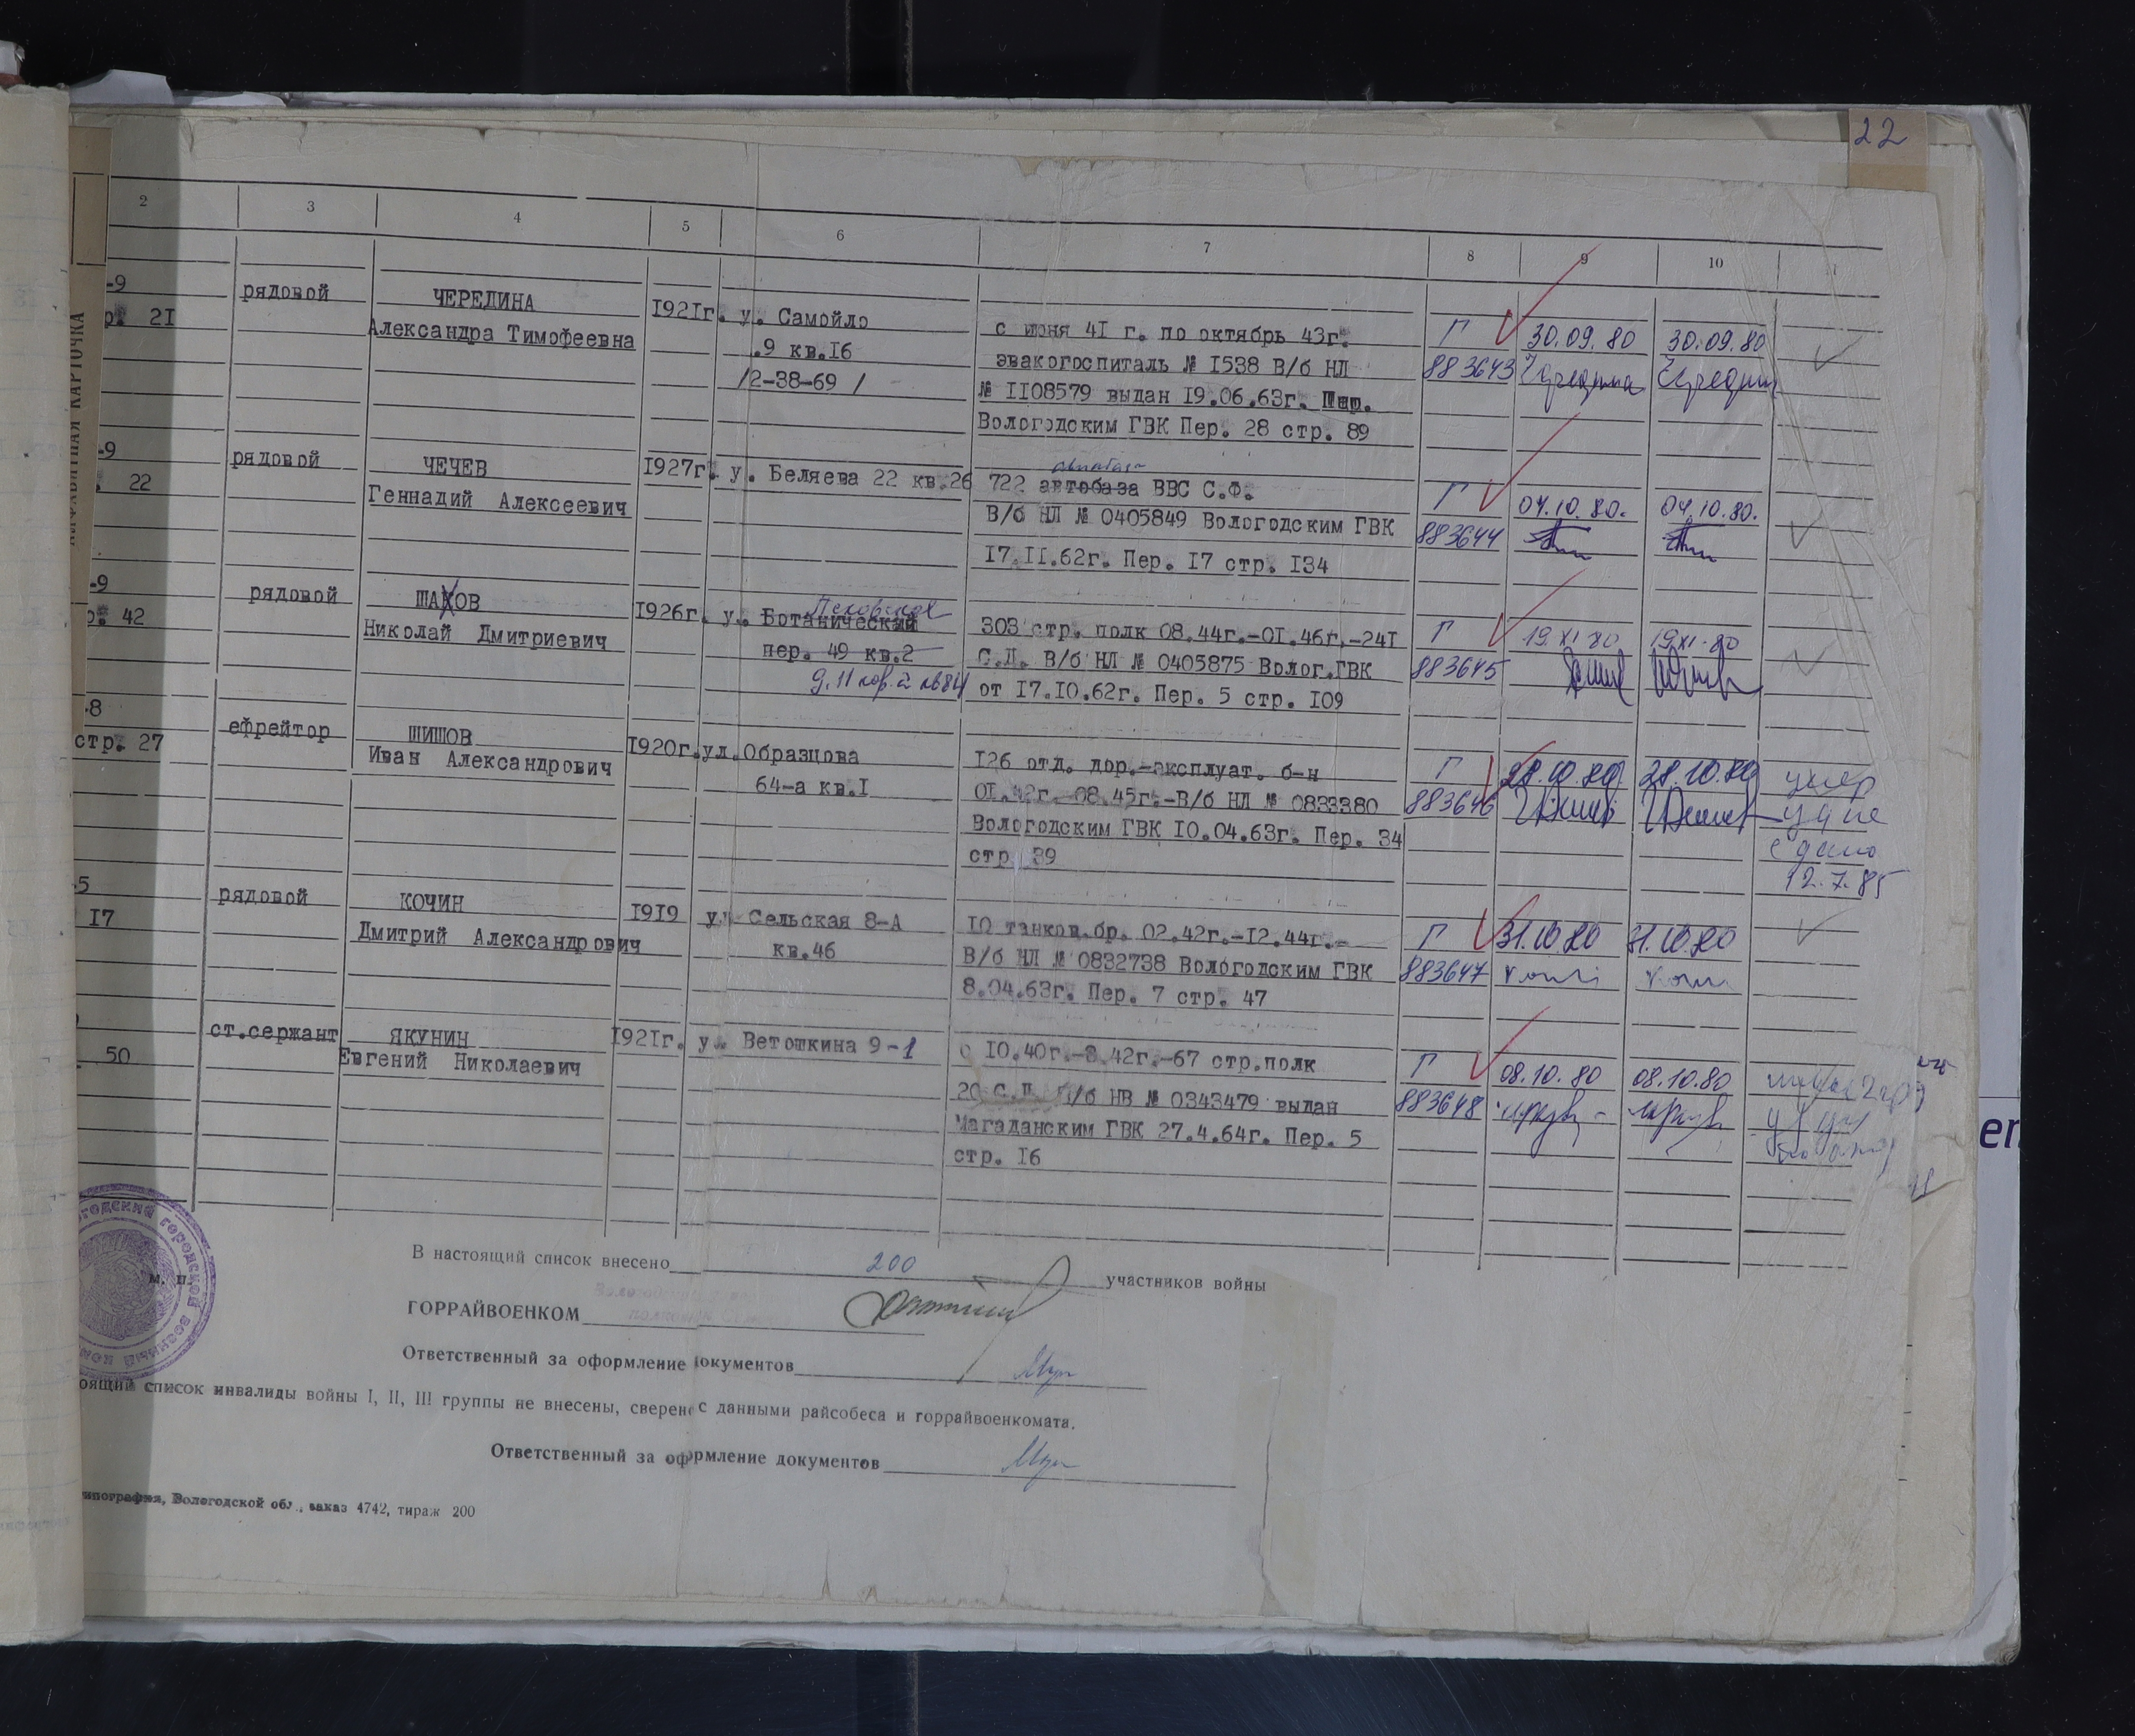 22
2 3 4 5 6 7 8 9 10 11
-9 рядовой ЧЕРЕДИНА 1921г. у. Самойло с июня 41 г. по октябрь 43г. Г 30.09.80 30.09.80
р. 21 Александра Тимофеевна .9 кв.16 эвакогоспиталь № 1538 В/б НЛ 883643
/2-38-69 / № 1108579 выдан 19.06.63г.
Вологодским ГВК Пер. 28 стр. 89
-9 рядовой ЧЕЧЕВ 1927г. у. Беляева 22 кв.26 722 автобаза ВВС С.Ф. Г 04.10.80. 04.10.80.
авиабаза
. 22 Геннадий Алексеевич В/б НЛ № 0405849 Вологодским ГВК 883644
17.11.62г. Пер. 17 стр. 134
-9 рядовой ШАХОВ 1926г. у. Ботанический Псковская 303 стр. полк 08.44г.-01.46г.-241 Г 19.XI.80 19.XI.80
р. 42 Николай Дмитриевич пер. 49 кв.2 С.Д. В/б НЛ № 0405875 Волог.ГВК 883645
д. 11 кор. 2 кв 84 от 17.10.62г. Пер. 5 стр. 109
-8 ефрейтор ШИШОВ 1920г. ул.Образцова 126 отд. дор.-эксплуат. б-н Г 28.10.80 28.10.80 умер
стр. 27 Иван Александрович 64-а кв.1 01.42г.-08.45г.-В/б НЛ № 0833380 883646 уд не
Вологодским ГВК 10.04.63г. Пер. 34 сдано
стр. 39 12.7.85
-5 рядовой КОЧИН 1919 ул Сельская 8-А 10 танков.бр. 02.42г.-12.44г.- Г 31.10.80 31.10.80
17 Дмитрий Александрович кв.46 В/б НЛ № 0832738 Вологодским ГВК 883647
8.04.63г. Пер. 7 стр. 47
ст.сержант ЯКУНИН 1921г. ул Ветошкина 9-1 с 10.40г.-8.42г.-67 стр.полк Г 08.10.80 08.10.80
50 Евгений Николаевич 20 С.Д. В/б НВ № 0343479 выдан 883648
Магаданским ГВК 27.4.64г. Пер. 5
стр. 16
В настоящий список внесено 200 участников войны
м. п.
ГОРРАЙВОЕНКОМ
Ответственный за оформление документов
оящий список инвалиды войны I, II, III группы не внесены, сверено с данными райсобеса и горрайвоенкомата.
Ответственный за оформление документов
типография, Вологодской обл., заказ 4742, тираж 200
АЛФАВИТНАЯ КАРТОЧКА
огодский городской военный ком